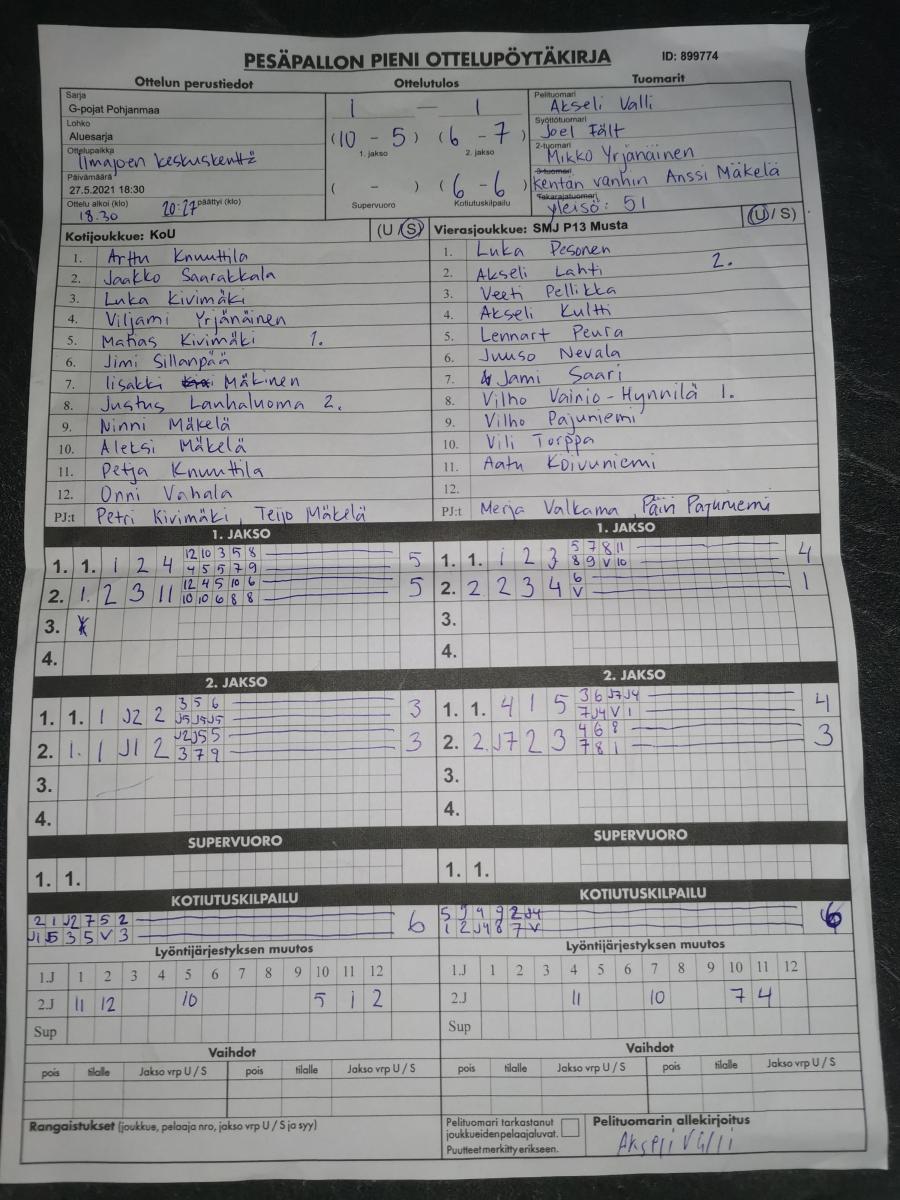 PESÄPALLON PIENI OTTELUPÖYTÄKIRJA ID: 899774
Ottelun perustiedot Ottelutulos Tuomarit
Sarja
G-pojat Pohjanmaa
Lohko
Aluesarja
Ottelupaikka
Ilmajoen keskuskenttä
Päivämäärä
27.5.2021 18:30
Ottelu alkoi (klo) päättyi (klo)
18.30 20:27
1 — 1
(10 - 5) (6 - 7)
1. jakso 2. jakso
( - ) (6 - 6)
Supervuoro Kotiutuskilpailu
Pelituomari
Akseli Valli
Syöttötuomari
Joel Fält
2-tuomari
Mikko Yrjänäinen
3-tuomari
kentän vanhin Anssi Mäkelä
Takarajatuomari
yleisö: 51
Kotijoukkue: KoU (U / S)
1. Arttu Knuuttila
2. Jaakko Saarakkala
3. Luka Kivimäki
4. Viljami Yrjänäinen
5. Matias Kivimäki 1.
6. Jimi Sillanpää
7. Iisakki Mäkinen
8. Justus Lanhaluoma 2.
9. Ninni Mäkelä
10. Aleksi Mäkelä
11. Petja Knuuttila
12. Onni Vahala
PJ:t Petri Kivimäki, Teijo Mäkelä
Vierasjoukkue: SMJ P13 Musta (U / S)
1. Luka Pesonen
2. Akseli Lahti 2.
3. Veeti Pellikka
4. Akseli Kultti
5. Lennart Peura
6. Juuso Nevala
7. Jami Saari
8. Vilho Vainio-Hynnilä 1.
9. Vilho Pajuniemi
10. Vili Torppa
11. Aatu Koivuniemi
12.
PJ:t Merja Valkama, Päivi Pajuniemi
1. JAKSO
1. 1. 1 2 4 12 10 3 5 8 5
4 5 5 7 9
2. 1. 2 3 11 12 4 5 10 6 5
10 10 6 8 8
3.
4.
1. JAKSO
1. 1. 1 2 3 5 7 8 11 4
8 9 V 10
2. 2 2 3 4 6 1
V
3.
4.
2. JAKSO
1. 1. 1 J2 2 3 5 6 3
J5 J5 J5
2. 1. 1 J1 2 J2 J5 5 3
3 7 9
3.
4.
2. JAKSO
1. 1. 4 1 5 3 6 J7 J4 4
7 J4 V 1
2. 2. J7 2 3 4 6 8 3
7 8 1
3.
4.
SUPERVUORO
1. 1.
SUPERVUORO
1. 1.
KOTIUTUSKILPAILU
2 1 J2 7 5 2 6
J1 5 3 5 V 3
KOTIUTUSKILPAILU
5 9 4 9 2 J4 6
1 2 J4 8 7 V
Lyöntijärjestyksen muutos
1.J 1 2 3 4 5 6 7 8 9 10 11 12
2.J 11 12 10 5 1 2
Sup
Lyöntijärjestyksen muutos
1.J 1 2 3 4 5 6 7 8 9 10 11 12
2.J 11 10 7 4
Sup
Vaihdot
pois tilalle Jakso vrp U / S pois tilalle Jakso vrp U / S
Vaihdot
pois tilalle Jakso vrp U / S pois tilalle Jakso vrp U / S
Rangaistukset (joukkue, pelaaja nro, jakso vrp U / S ja syy)
Pelituomari tarkastanut
joukkueidenpelaajaluvat.
Puutteet merkitty erikseen.
Pelituomarin allekirjoitus
Akseli Valli